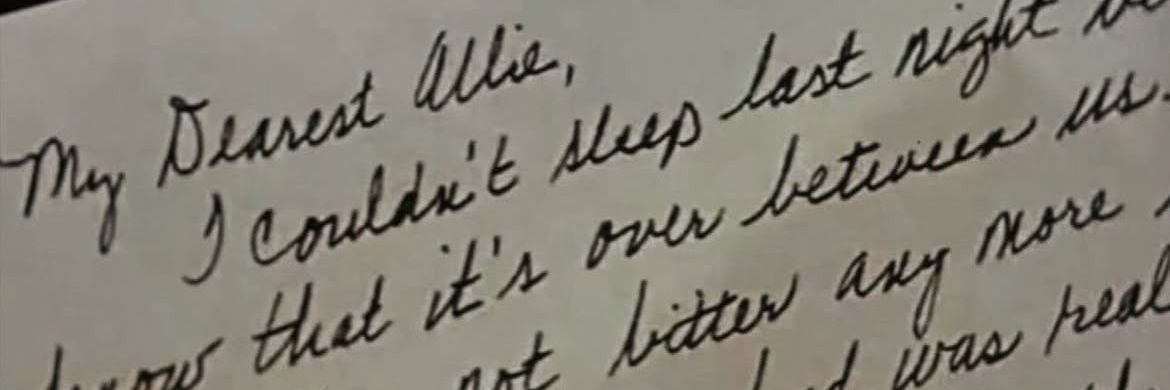 My Dearest Allie,
I couldn't sleep last night
know that it's over between us.
not bitter any more
was real